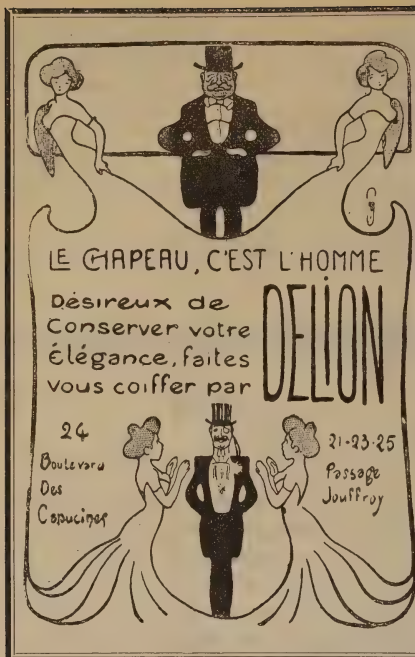 LE CHAPEAU, C'EST L'HOMME
Désireux de
Conserver votre
Élégance, faites
vous coiffer par
DELION
24
Boulevard
Des
Capucines
21-23-25
Passage
Jouffroy